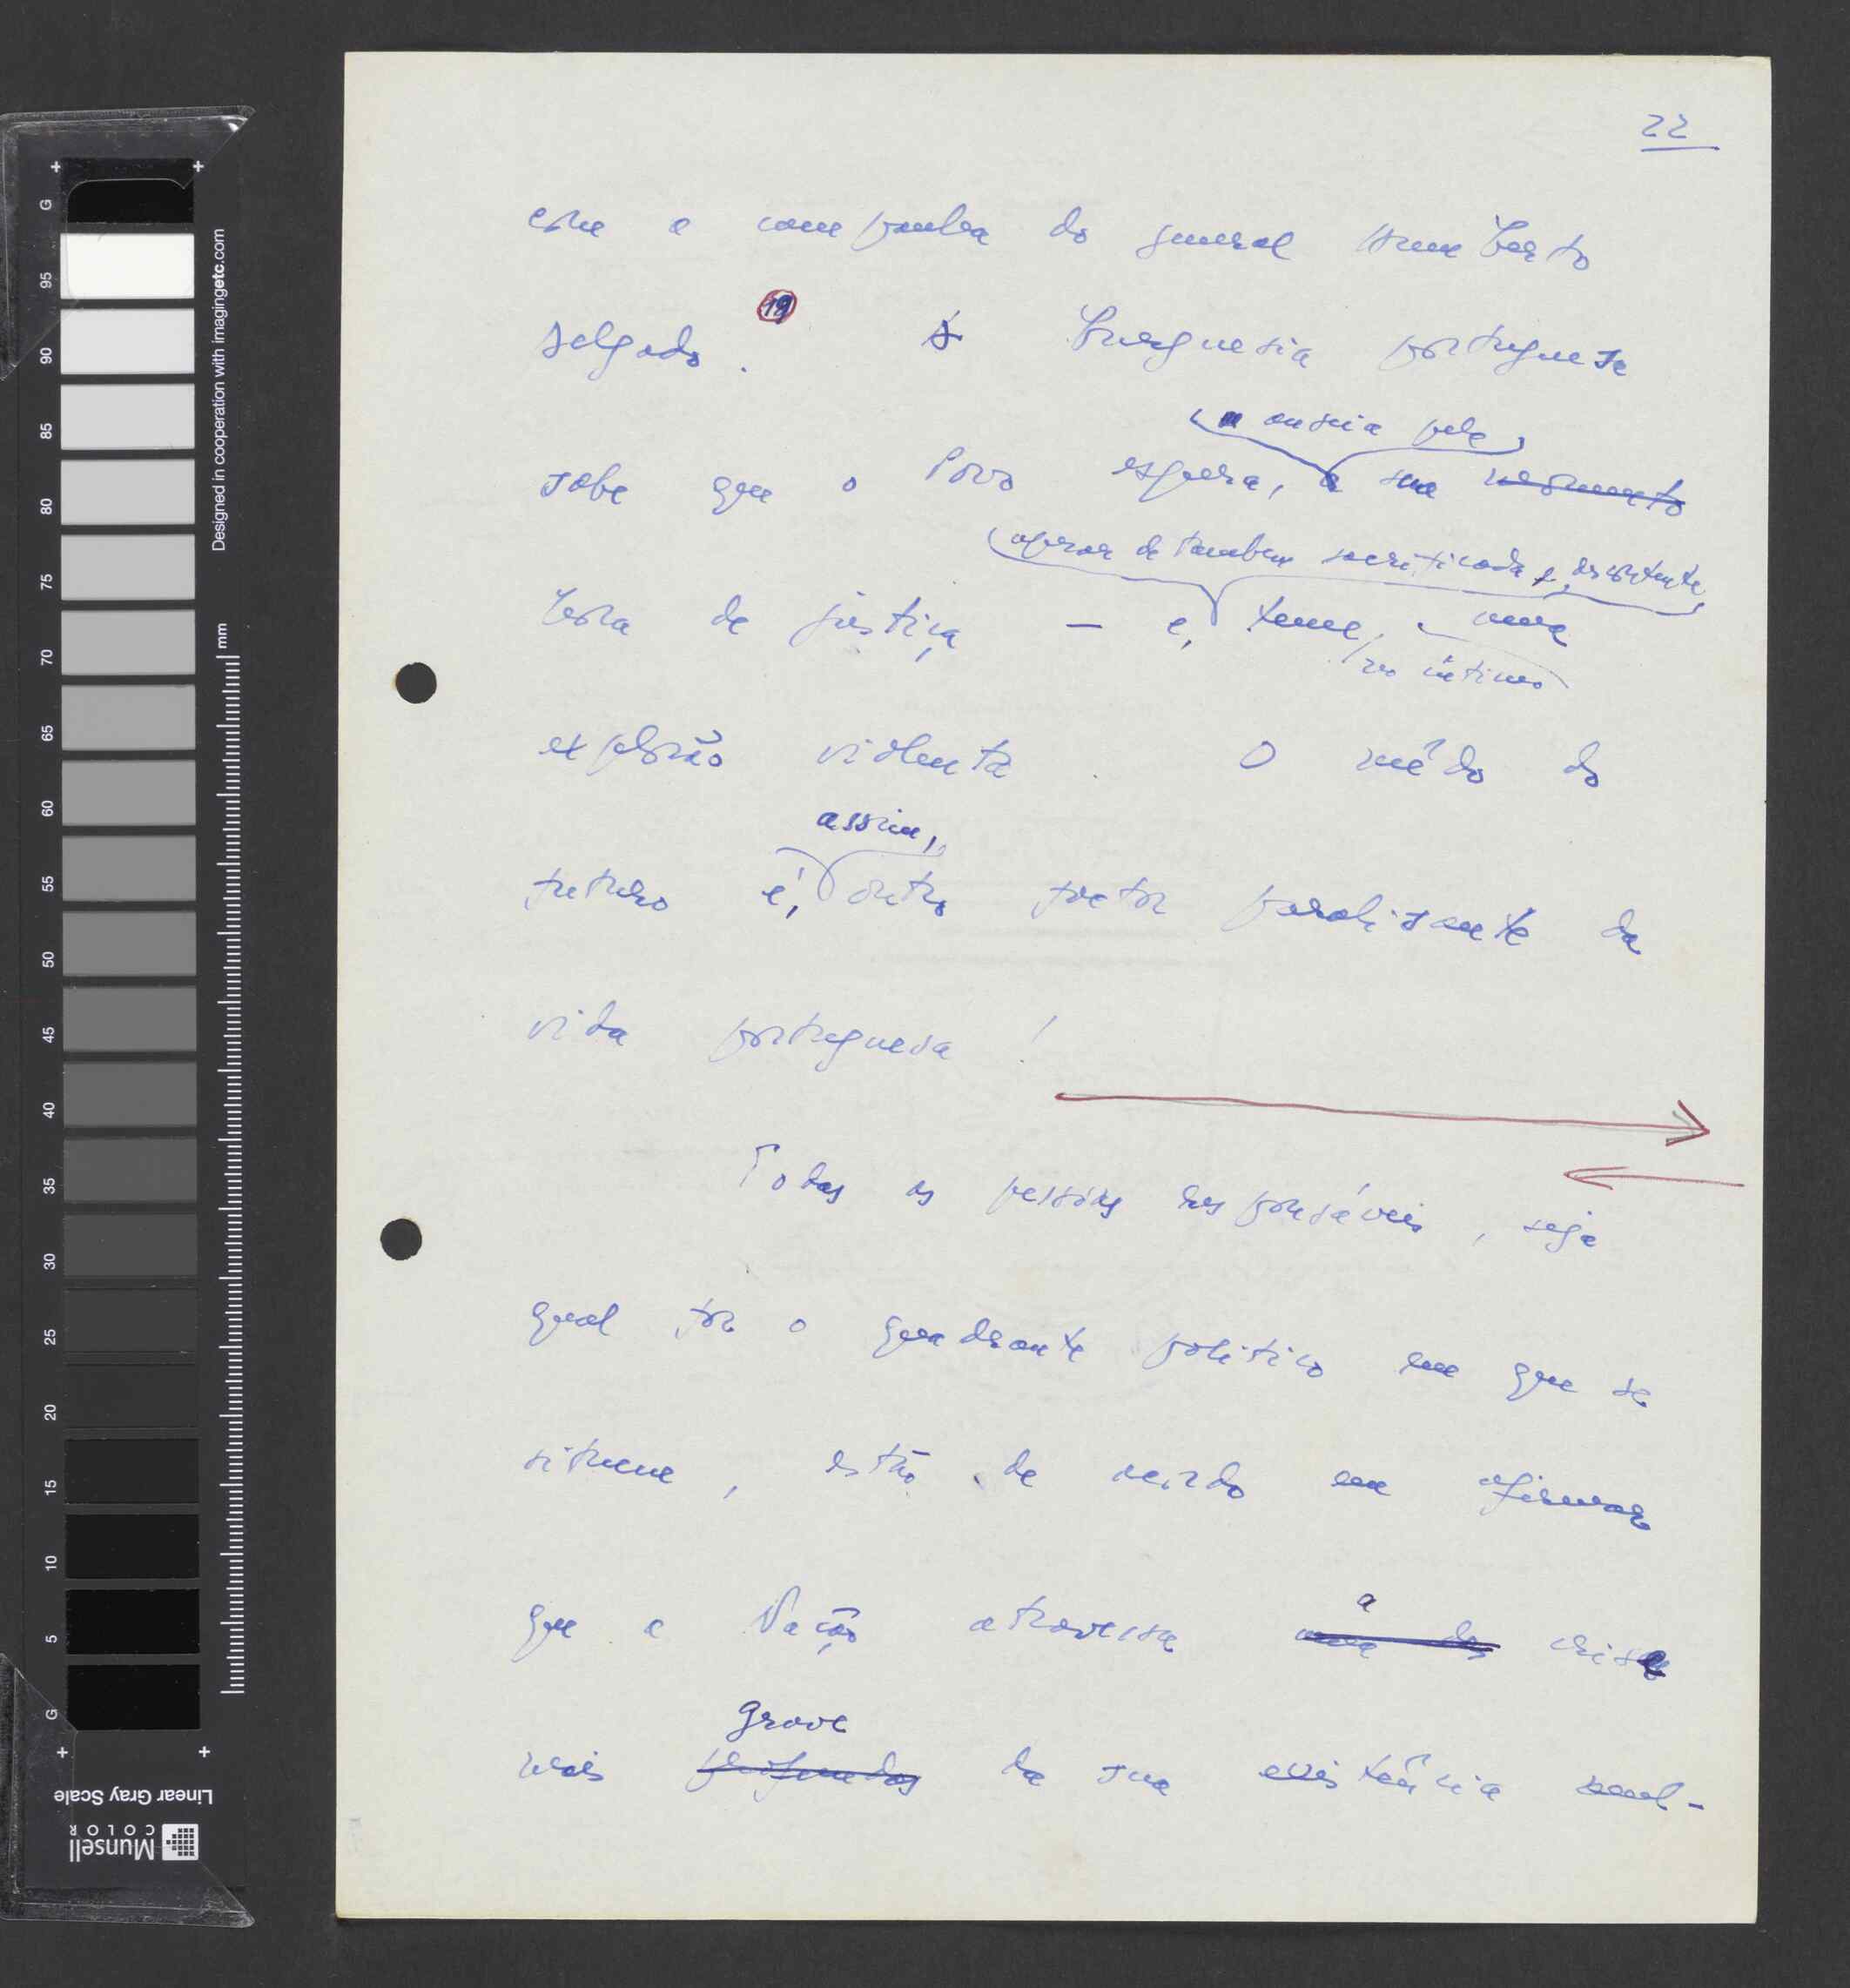 22
com a campanha do general Humberto
Delgado. 19 A burguesia portuguesa
a ansia pela
sabe que o Povo espera, a sua
apesar de tambem sacrificada e descontente,
hora de justiça — e, teme, uma
no íntimo
explosão violenta. O mêdo do
assim,
futuro é, outro factor paralisante da
vida portuguesa!
Todas as pessôas responsáveis, seja
qual fôr o quadrante politico em que se
situem, estão de acôrdo em afirmar
que a Nação atravessa uma das crise
a
grave
mais profundas da sua existência mul-
G
95
90
85
80
75
70
65
60
55
50
45
40
35
30
25
20
15
10
5
G
mm
Designed in cooperation with imagingetc.com
Linear Gray Scale
Munsell
COLOR